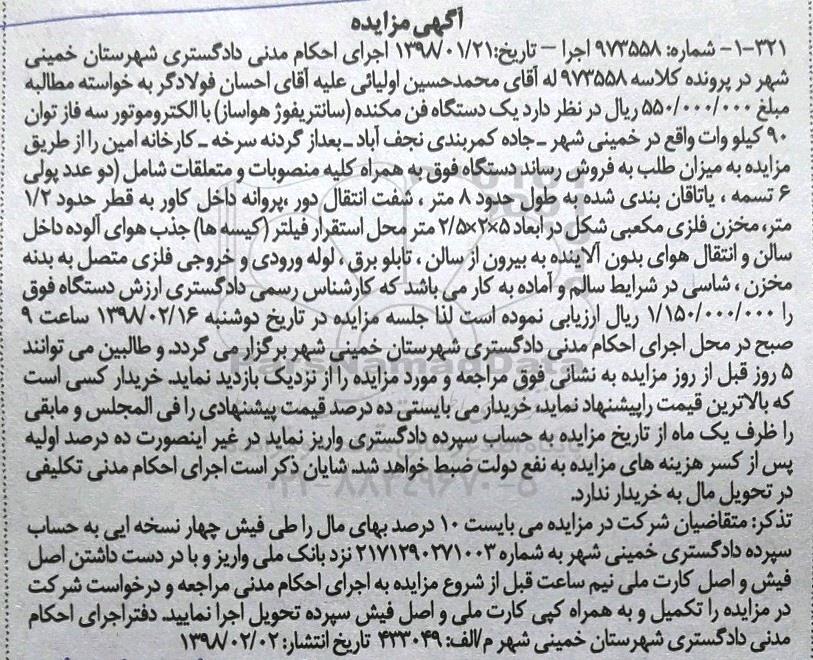 آگهی مزایده
۳۲۱-۱- شماره: ۹۷۳۵۵۸ اجرا – تاریخ:۱۳۹۸/۰۱/۲۱ اجرای احکام مدنی دادگستری شهرستان خمینی
شهر در پرونده کلاسه ۹۷۳۵۵۸ له آقای محمدحسین اولیائی علیه آقای احسان فولادگر به خواسته مطالبه
مبلغ ۵۵۰/۰۰۰/۰۰۰ ریال در نظر دارد یک دستگاه فن مکنده (سانتریفوژ هواساز) با الکتروموتور سه فاز توان
۹۰ کیلو وات واقع در خمینی شهر ـ جاده کمربندی نجف آباد ـ بعداز گردنه سرخه ـ کارخانه امین را از طریق
مزایده به میزان طلب به فروش رساند دستگاه فوق به همراه کلیه منصوبات و متعلقات شامل (دو عدد پولی
۶ تسمه ، یاتاقان بندی شده به طول حدود ۸ متر ، شفت انتقال دور ،پروانه داخل کاور به قطر حدود ۱/۲
متر، مخزن فلزی مکعبی شکل در ابعاد ۵×۲×۲/۵ متر محل استقرار فیلتر (کیسه ها) جذب هوای آلوده داخل
سالن و انتقال هوای بدون آلاینده به بیرون از سالن ، تابلو برق ، لوله ورودی و خروجی فلزی متصل به بدنه
مخزن ، شاسی در شرایط سالم و آماده به کار می باشد که کارشناس رسمی دادگستری ارزش دستگاه فوق
را ۱/۱۵۰/۰۰۰/۰۰۰ ریال ارزیابی نموده است لذا جلسه مزایده در تاریخ دوشنبه ۱۳۹۸/۰۲/۱۶ ساعت ۹
صبح در محل اجرای احکام مدنی دادگستری شهرستان خمینی شهر برگزار می گردد. و طالبین می توانند
۵ روز قبل از روز مزایده به نشانی فوق مراجعه و مورد مزایده را از نزدیک بازدید نماید. خریدار کسی است
که بالاترین قیمت راپیشنهاد نماید، خریدار می بایستی ده درصد قیمت پیشنهادی را فی المجلس و مابقی
را ظرف یک ماه از تاریخ مزایده به حساب سپرده دادگستری واریز نماید در غیر اینصورت ده درصد اولیه
پس از کسر هزینه های مزایده به نفع دولت ضبط خواهد شد. شایان ذکر است اجرای احکام مدنی تکلیفی
در تحویل مال به خریدار ندارد.
تذکر: متقاضیان شرکت در مزایده می بایست ۱۰ درصد بهای مال را طی فیش چهار نسخه ایی به حساب
سپرده دادگستری خمینی شهر به شماره ۲۱۷۱۲۹۰۲۷۱۰۰۳ نزد بانک ملی واریز و با در دست داشتن اصل
فیش و اصل کارت ملی نیم ساعت قبل از شروع مزایده به اجرای احکام مدنی مراجعه و درخواست شرکت
در مزایده را تکمیل و به همراه کپی کارت ملی و اصل فیش سپرده تحویل اجرا نمایید. دفتراجرای احکام
مدنی دادگستری شهرستان خمینی شهر م/الف: ۴۳۳۰۴۹ تاریخ انتشار: ۱۳۹۸/۰۲/۰۲
ParsNamadData
۰۲۱-۸۸۳۴۹۶۷۰-۵